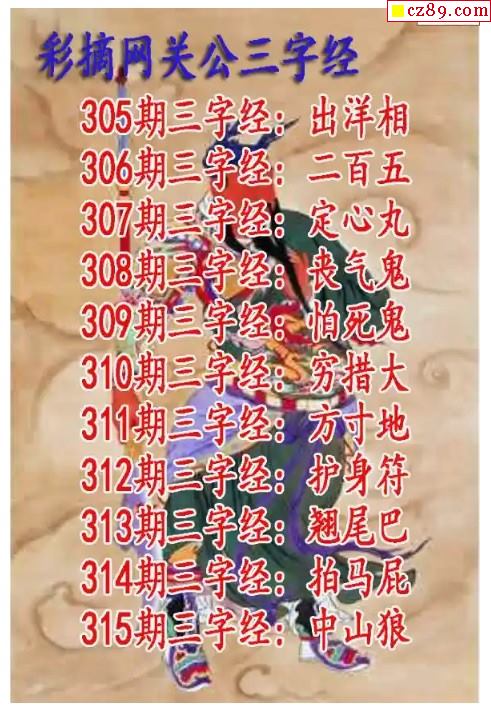 cz89.com
彩摘网关公三字经
305期三字经：出洋相
306期三字经：二百五
307期三字经：定心丸
308期三字经：丧气鬼
309期三字经：怕死鬼
310期三字经：穷措大
311期三字经：方寸地
312期三字经：护身符
313期三字经：翘尾巴
314期三字经：拍马屁
315期三字经：中山狼